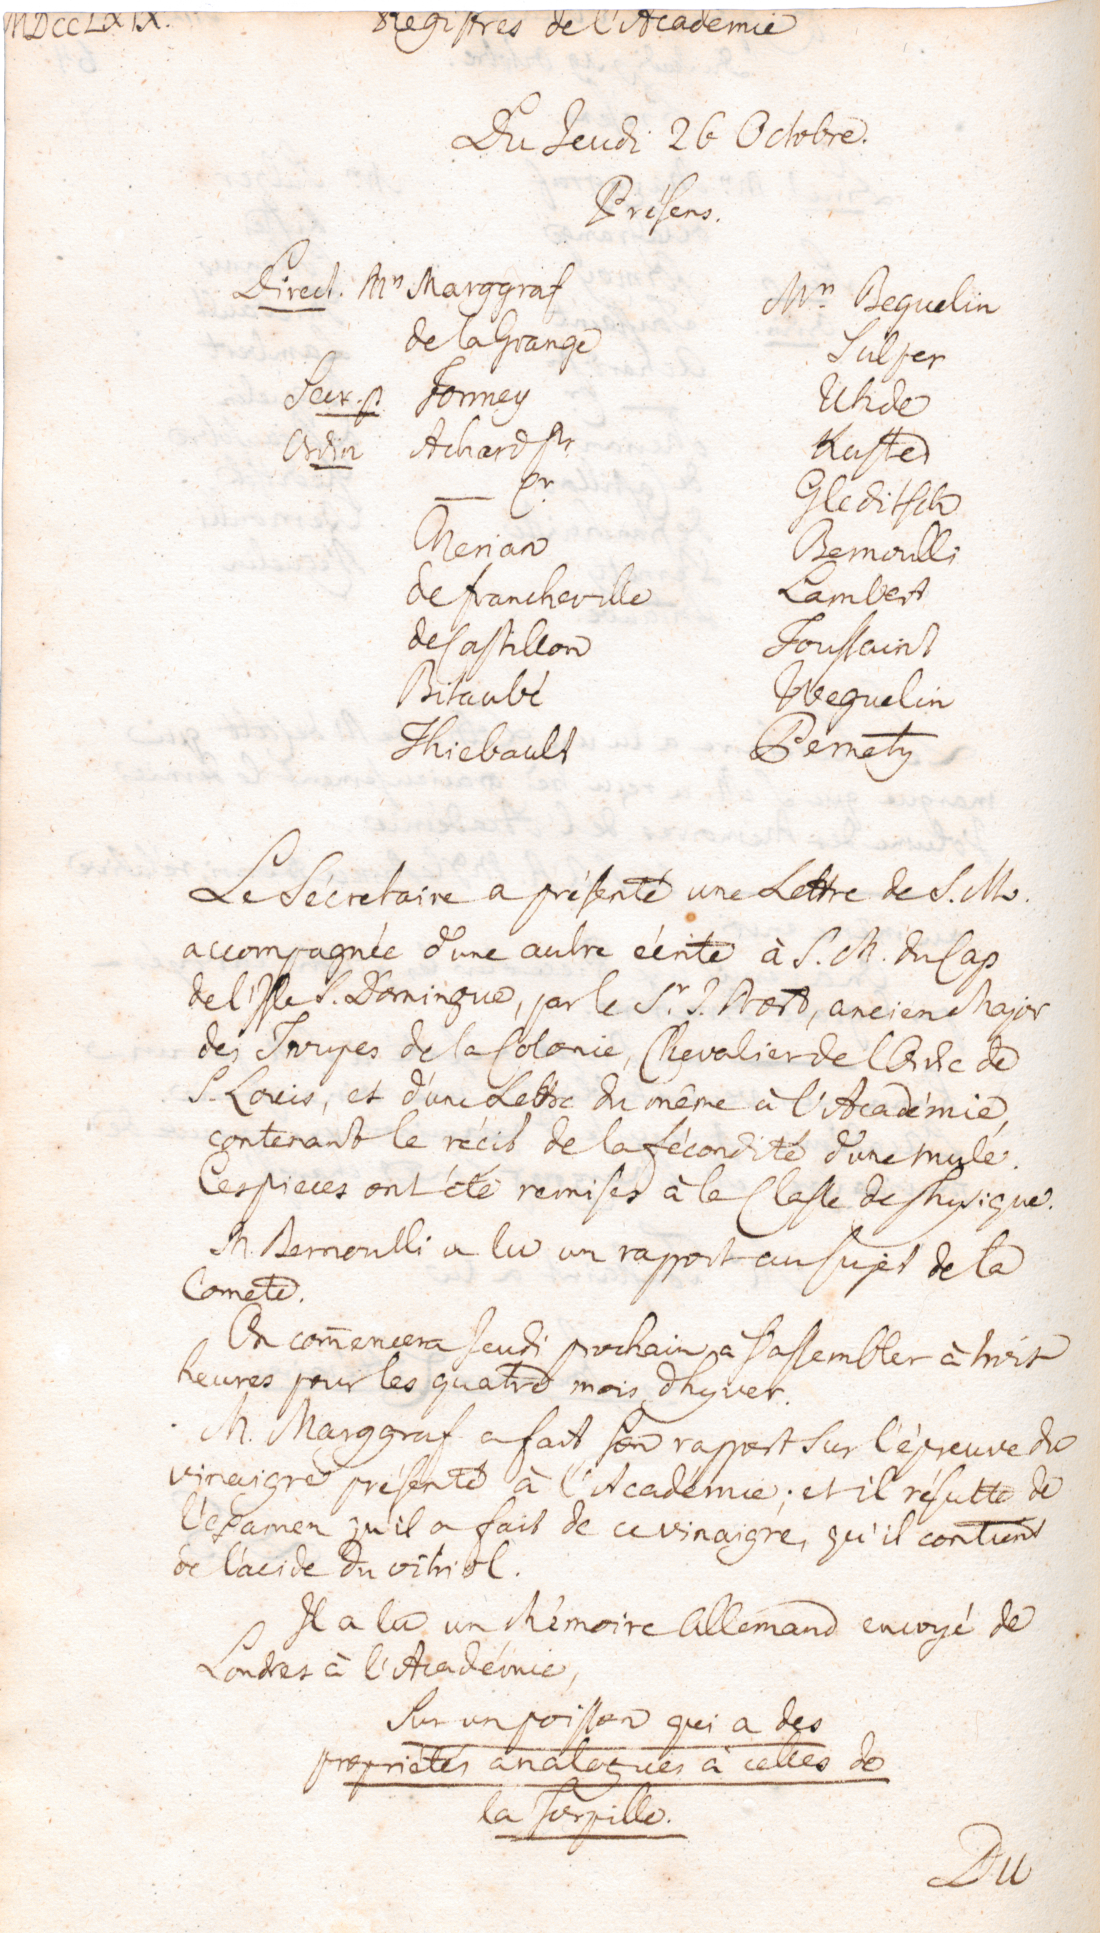 MDCCLXIX.
Registres de l'Academie
Du Jeudi 26 Octobre.
Présens.
Direct. Mrs Marggraf
de la Grange
Secr. p. Formey
Ordin Achard pr
— gr.
Merian
de francheville
de Castillon
Bitaubé
Thiebault
Mrs. Beguelin
Sulzer
Uhde
Kuster
Gleditsch
Bernoulli
Lambert
Toussaint
Weguelin
Pernety
Le Sécretaire a présenté une Lettre de S. M.
accompagnée d'une autre écrite à S. M. du Cap
de l'Isle S. Domingue, par le Sr. J. , ancien Major
des Troupes de la Colonie, Chevalier de l'Ordre de
S. Louis, et d'une Lettre du même à l'Académie,
contenant le récit de la fécondité d'une mule.
Ces pieces ont été remises à la Classe de Physique.
M. Bernoulli a lu un rapport au sujet de la
Comete.
On com̄encera Jeudi prochain à s'assembler à trois
heures pour les quatre mois d'hyver.
M. Marggraf a fait son rapport sur l'épreuve du
vinaigre présenté à l'Académie; et il résulte de
l'examen qu'il a fait de ce vinaigre, qu'il contient
de l'acide du vitriol.
Il a lu un Mémoire Allemand envoyé de
Londres à l'Académie,
Sur un poisson qui a des
propriétés analogues à celles de
la Torpille.
Du